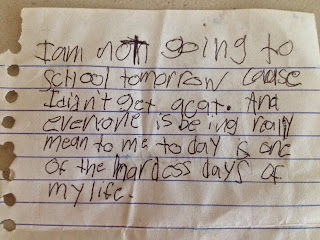 I am not going to
school tomorrow cause
I didn't get acat. And
everyone is being really
mean to me to day is one
of the hardess days of
my life.